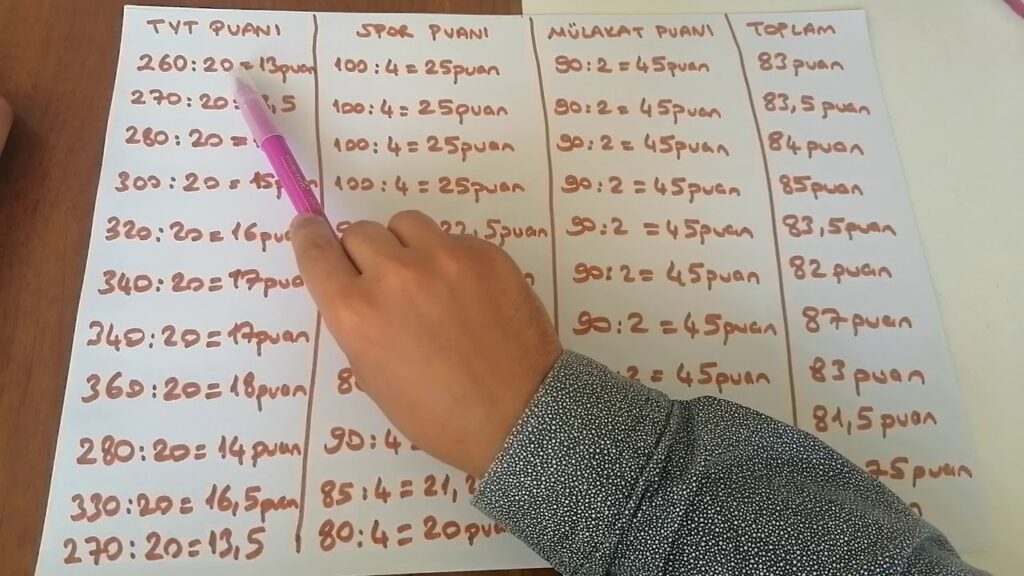 TYT PUANI SPOR PUANI MÜLAKAT PUANI TOPLAM
260:20=13puan 100:4=25puan 90:2=45puan 83puan
270:20 ,5 100:4=25puan 90:2=45puan 83,5puan
280:20= 100:4=25puan 90:2=45puan 84puan
300:20=15puan 100:4=25puan 90:2=45puan 85puan
320:20=16puan 22,5puan 90:2=45puan 83,5puan
340:20=17puan 90:2=45puan 82puan
340:20=17puan 90:2=45puan 87puan
360:20=18puan :2=45puan 83puan
280:20=14puan 90:4= 81,5puan
330:20=16,5puan 85:4=21, 75puan
270:20=13,5 80:4=20puan